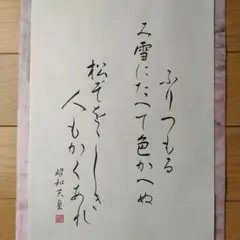 ふりつもる
み雪にたへて色かへぬ
松ぞをゝしき
人もかくあれ
昭和天皇